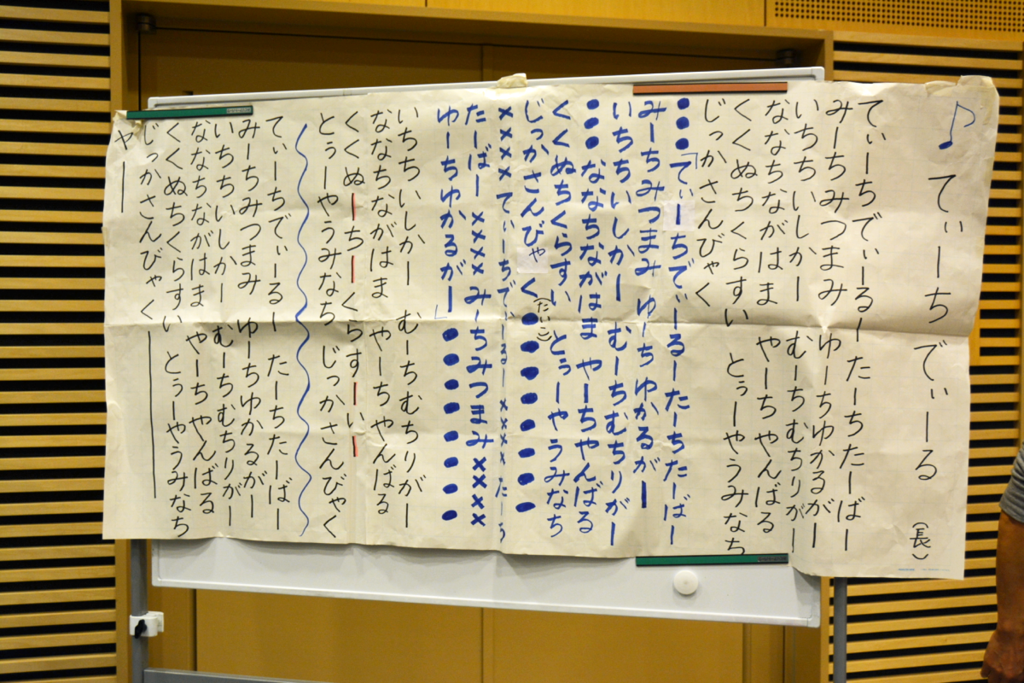 ♪ てぃーち でぃーる
(長)
てぃーちでぃーるー たーちたーばー
みーちみつまみ ゆーちゆかるがー
いちち いしかー むーちむちりがー
ななちながはま やーちやんばる
くくぬちくらすい とぅーやうみなち
じっかさんびゃく
●●●「てぃーちでぃーるー たーちたーばー
みーちみつまみ ゆーちゆかるがー
いちちいしかー むーちむちりがー
●●● ななちながはま やーちやんばる
くくぬちくらすい とぅーやうみなち
じっかさんびゃく(たいこ)●●●●●●
×××× てぃーちでぃーるー ×××× たーち
たーばー ×××× みーちみつまみ ××××
ゆーちゆかるがー」●●●●●●●●
いちちいしかー むーちむちりがー
ななちながはま やーちやんばる
くくぬーちーくらすーいー
とぅーやうみなち じっかさんびゃく
てぃーちでぃーるー たーちたーばー
みーちみつまみ ゆーちゆかるがー
いちちいしかー むーちむちりがー
ななちながはま やーちやんばる
くくぬちくらすい とぅーやうみなち
じっかさんびゃくーー
やーー